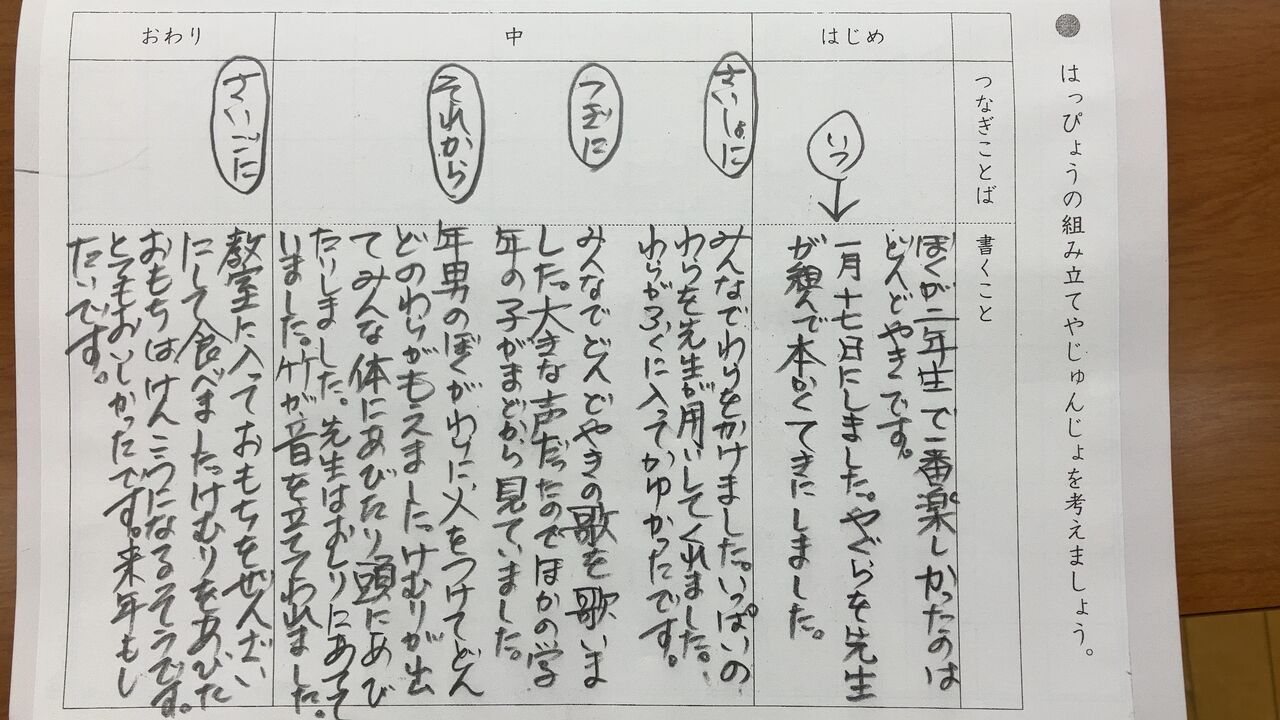 はっぴょうの組み立てやじゅんじょを考えましょう。
つなぎことば
書くこと
はじめ
いつ
ぼくが二年生で一番楽しかったのは
どんどやきです。
一月十七日にしました。やぐらを先生
が組んで本かくてきにしました。
中
さいしょに
みんなでわらをかけました。いっぱいの
わらを先生が用いしてくれました。
わらがふくに入ってかゆかったです。
つぎに
みんなでどんどやきの歌を歌いま
した。大きな声だったのでほかの学
年の子がまどから見ていました。
それから
年男のぼくがわらに火をつけてどん
どのわらがもえました。けむりが出
てみんな体にあびたり頭にあび
たりしました。先生はおしりにあてて
いました。竹が音を立ててわれました。
おわり
さいごに
教室に入っておもちをぜんざい
にして食べました。けむりをあびた
おもちはけんこうになるそうです。
とてもおいしかったです。来年もし
たいです。